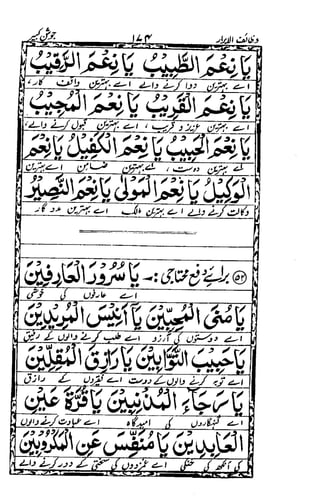 وظائف الابرار ۱۷۴ جوشن کبیر
یَا نِعْمَ الطَّبِیْبُ یَا نِعْمَ الرَّقِیْبُ
اے بہترین دوا کرنے والے اے بہترین واقف کار،
یَا نِعْمَ الْقَرِیْبُ یَا نِعْمَ الْمُجِیْبُ
اے بہترین عزیز و قریب، اے بہترین قبول کرنے والے،
یَا نِعْمَ الْحَبِیْبُ یَا نِعْمَ الْکَفِیْلُ یَا نِعْمَ
اے بہترین دوست، اے بہترین ضامن اے بہترین
الْوَکِیْلُ یَا نِعْمَ الْمَوْلٰی یَا نِعْمَ النَّصِیْرُ
وکالت کرنے والے اے بہترین مالک اے بہترین مددگار
(۵۲) برائے دفع محتاجی :۔ یَا سُرُوْرَ الْعَارِفِیْنَ
اے عارفوں کی خوشی
یَا مُنَی الْمُحِبِّیْنَ یَا اَنِیْسَ الْمُرِیْدِیْنَ
اے دوستوں کی آرزو اے طلب کرنے والوں کے رفیق
یَا حَبِیْبَ التَّوَّابِیْنَ یَا رَازِقَ الْمُقِلِّیْنَ
اے توبہ کرنے والوں کے دوست اے فقیروں کے رازق
یَا رَجَآءَ الْمُذْنِبِیْنَ یَا قُرَّةَ عَیْنِ
اے گنہگاروں کی امیدگاہ اے عبادت کرنے والوں
الْعَابِدِیْنَ یَا مُنَفِّسَ عَنِ الْمَکْرُوْبِیْنَ
کی آنکھ کی خنکی اے غمزدوں کی سختی کے دور کرنے والے